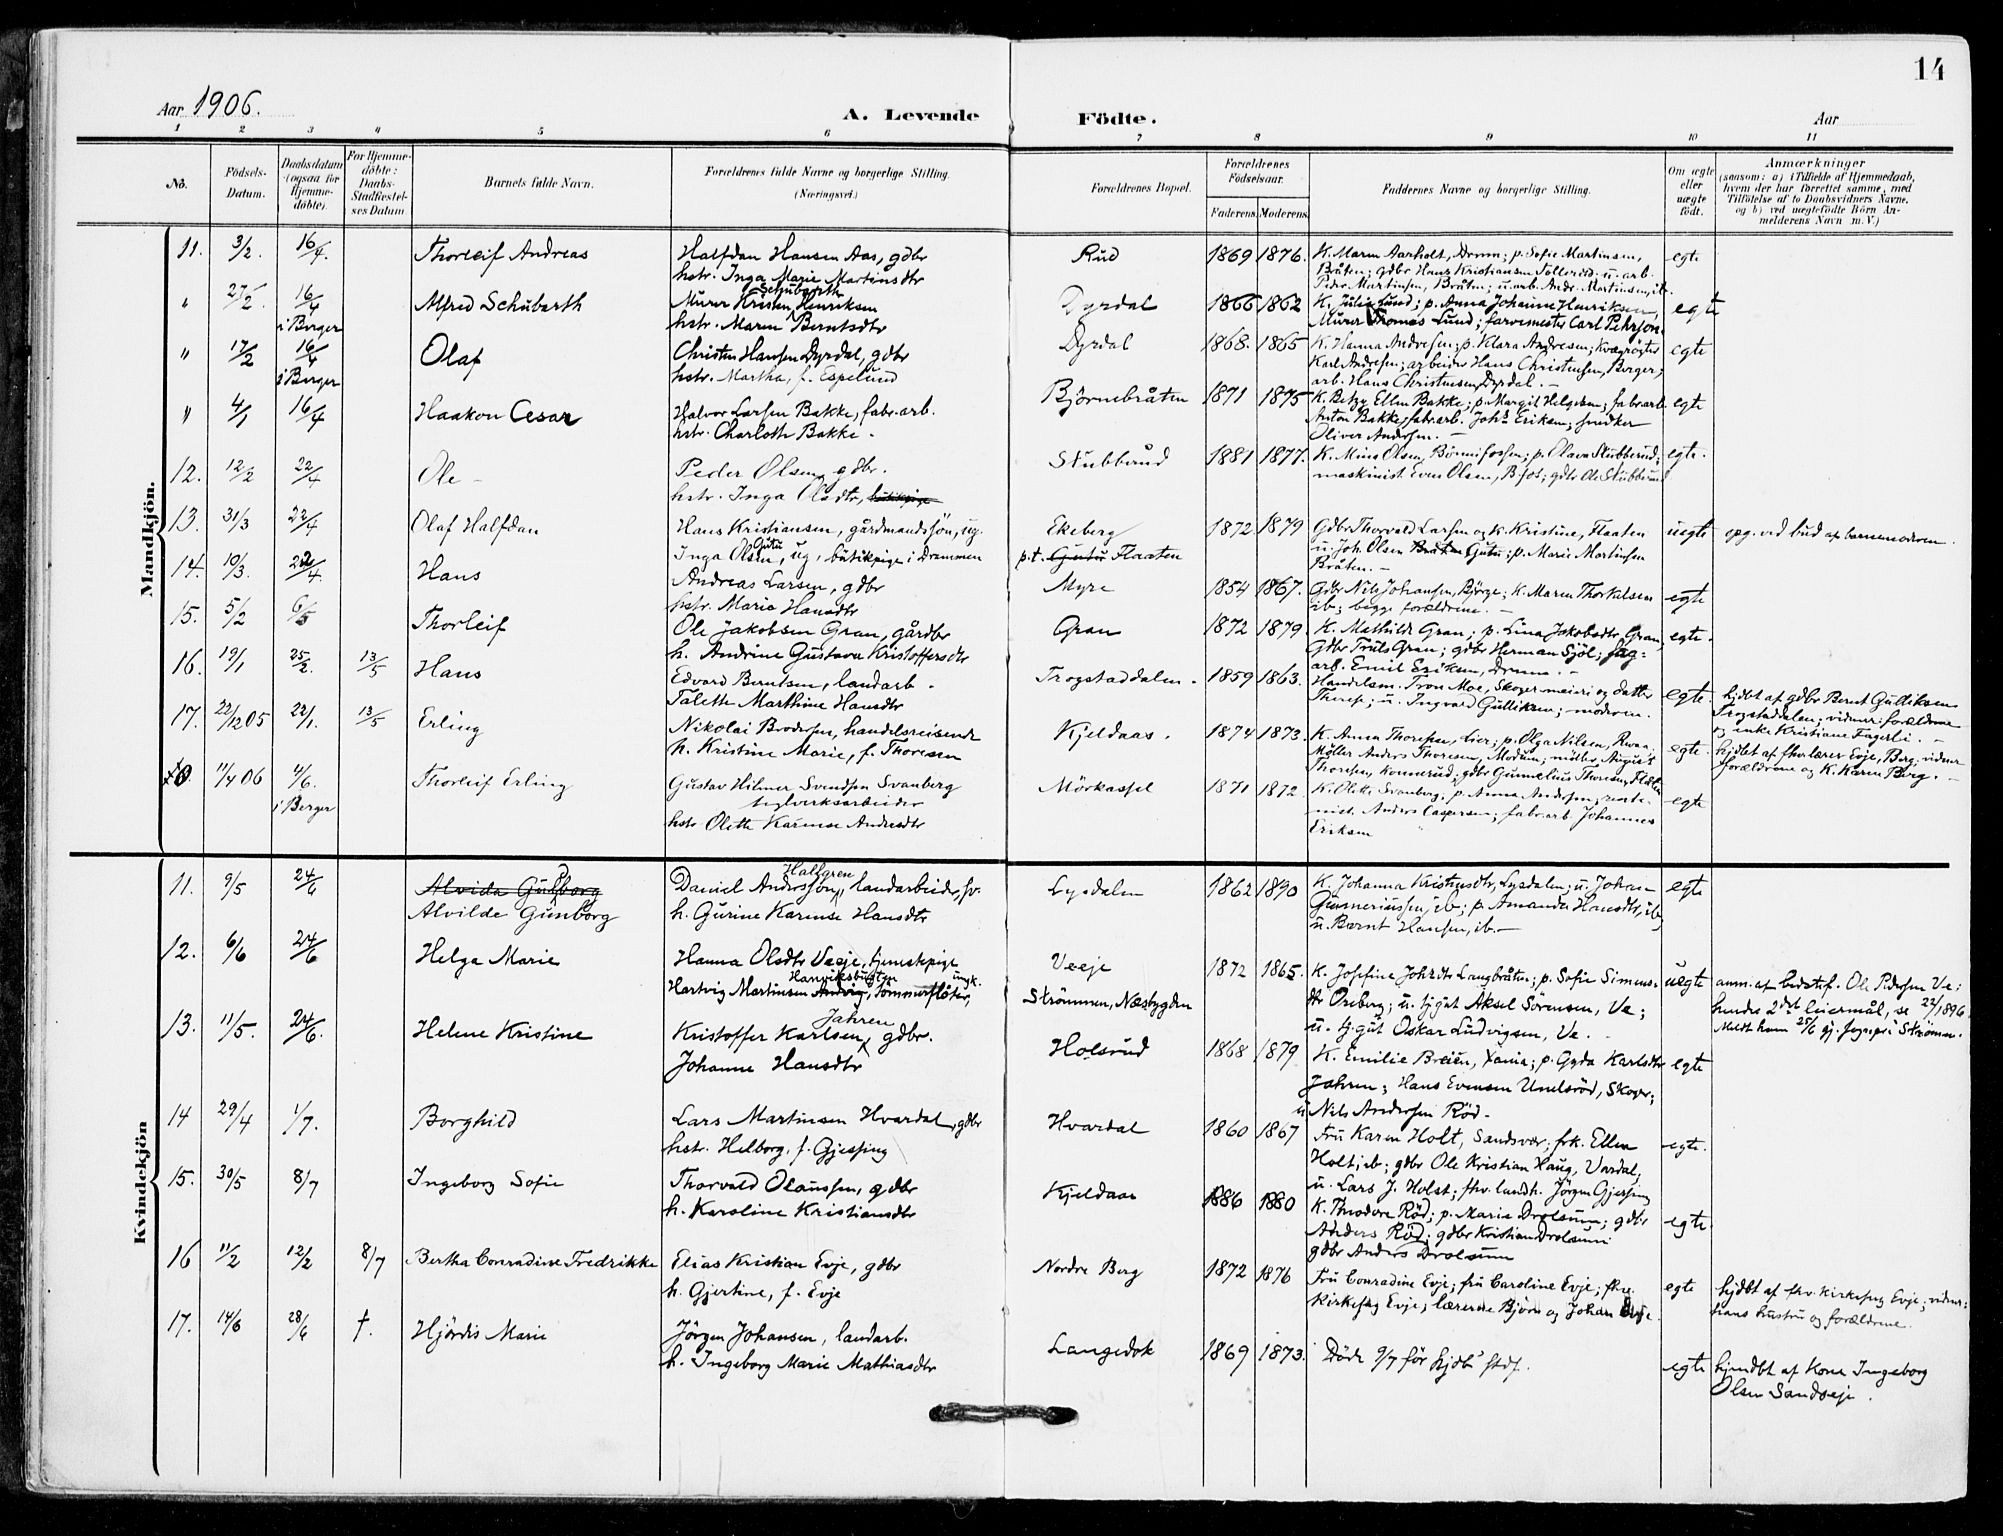 14
Aar 1906.
A. Levende Födte.
Aar
1 2 3 4 5 6 7 8 9 10 11
No.
Födsels-Datum.
Daabsdatum (ogsaa for Hjemme-döbte).
For Hjemme-döbte: Daabs-Stadfæstel-ses Datum
Barnets fulde Navn.
Forældrenes fulde Navne og borgerlige Stilling.
(Næringsvei.)
Forældrenes Bopæl.
Forældrenes Födselsaar.
Faderens. Moderens.
Faddernes Navne og borgerlige Stilling.
Om ægte eller uægte födt.
Anmærkninger
(saasom: a) i Tilfælde af Hjemmedaab,
hvem der har forrettet samme, med
Tilföielse af to Daabsvidners Navne,
og b) ved uægtefödte Börn An-
melderens Navn m. V.)
Mandkjön.
11. 3/2. 16/4. Thorleif Andreas
Halfdan Hansen Aas, gdbr
hstr. Inga Marie Martinsdtr
Rud 1869 1876.
K. Maren Aarholt, Dramm; p. Sofie Martinsen,
Bråten; gdbr Hans Kristiansen Tollerud; u. arb.
Peder Martinsen, Bråten; u. arb. Andr. Martinsen, ib.
egte
" 27/2. 16/4 i Berger Alfred Schubarth
Schubarth
Murer Kristen Henriksen
hstr. Maren Berntsdtr
Dyrdal 1866 1862
K. Julie Lund; p. Anna Johanne Henriksen,
Murer Thomas Lund; farvemester Carl Pehrson.
egte
" 17/2 16/4 i Berger Olaf
Christen Hansen Dyrdal, gdbr
hstr. Martha, f. Espelund
Dyrdal 1868. 1865
K. Hanna Andresen; p. Klara Andresen; kvægrögter
Karl Andresen; arbeider Hans Christensen, Berger;
arb. Hans Christensen, Dyrdal. -
egte
" 4/1 16/4 Haakon Cesar
Halvor Larsen Bakke, fabr.arb.
hstr. Charlotte Bakke -
Björnebråten 1871 1875
K. Betzy Ellen Bakke; p. Margit Helgesen; fabr.arb.
Anton Bakke, fabr.arb. Johs Eriksen, snedker
Oliver Andersen. -
egte
12. 12/2 22/4 Ole -
Peder Olsen, gdbr.
hstr. Inga Olsdtr,
Stubberud 1881 1877.
K. Mina Olsen, Bönnifossen; p. Olava Stubberud;
maskinist Even Olsen, B.fos; gdbr Ole Stubberud
egte.
13. 31/3 22/4 Olaf Halfdan
Hans Kristiansen, gårdmandssön, ug.
Gutu
Inga Olsen, ug, butikpige i Drammen
Ekeberg
p.t. Gutu Flaaten
1872 1879
Gdbr Thorvald Larsen og k. Kristine, Flaaten
u. Joh. Olsen Bråten Gutu; p. Marie Martinsen
Bråten. -
uegte
opg. ved bud af barnemoderen.
14. 10/3. 22/4. Hans
Andreas Larsen, gdbr
hstr. Marie Hansdtr
Myre 1854 1867.
Gdbr Nils Johansen, Börge; K. Maren Thorkelsen
ib; begge forældrene. -
egte
15. 5/2 6/5 Thorleif
Ole Jakobsen Gran, gårdbr
h. Andrine Gustava Kristoffersdtr
Gran 1872 1879.
K. Mathilde Gran; p. Lina Jakobsdtr Gran,
Gdbr Truls Gran; gdbr Herman Sjöl; sag-
arb. Emil Eriksen, Dramm. -
egte.
16. 19/1 25/2. 13/5 Hans
Edvard Berntsen, landarb.
Talette Marthine Hansdtr
Trogstaddalen. 1859 1863.
Handelsm. Tron Moe, Skoger meieri og datter
Therese; u. Ingvald Gulliksen; moderen.
egte.
hjdbt af gdbr Bernt Gulliksen
Trogstaddalen; vidner: forældrene
og enke Kristiane Fagerli. -
17. 22/12 05 22/1. 13/5 Erling
Nikolai Brodersen, handelsreisende
h. Kristine Marie, f. Thoresen
Kjeldaas. 1874 1873.
K. Anna Thoresen, Lier; p. Olga Nilsen,
Möller Anders Thoresen, Modum; möller August
Thoresen, Konnerud; gdbr Gunnelius Thoresen,
egte.
hjdbt af fhv. lærer Evje, Berg; vidner
forældrene og K. Karen Berg. -
11/4 06 4/6. i Berger Thorleif Erling
Gustav Hilmer Svendsen Svanberg
teglverksarbeider
hstr Olette Karense Andresdtr
Mörkassel 1871 1872
K. Olette Svanberg; p. Anna Andersen,
Anders Caspersen; fabr.arb. Johannes
Eriksen
egte
Kvindekjön
11. 9/5 24/6 Alvida Gulborg
Alvilde Gunborg
Hallgren
Daniel Anderssön, landarbeider, sv.
h. Gurine Karense Hansdtr
Lysdalen 1862 1890
K. Johanna Kristensdtr, Lysdalen; u. Johan
Gunneriussen, ib; p. Amanda Hansdtr, ib,
u. Bernt Hansen, ib. -
egte
12. 6/6 24/6 Helga Marie
Hanna Olsdtr Veeje, tjenestepige
ungk.
Hartvig Martinsen, tömmerflöter,
Veeje
Strömmen, Næsbygden
1872 1865.
K. Josefine Johsdtr Langbråten; p. Sofie Simens-
dtr Oseberg; u. tjgut Aksel Sörensen, Ve;
u. tj.gut Oskar Ludvigsen, Ve. -
uegte
anm. af bedstef. Ole Pedersen Ve;
hendes 2det leiermål, se 22/1896.
Meldt ham 25/6 gj. sognepr i Strömm.
13. 11/5. 24/6. Helene Kristine
Jahren
Kristoffer Karlsen, gdbr.
Johanne Hansdtr
Holsrud 1868 1879
K. Emilie Breien, Xania; p. Gyda Karlsdtr
Jahren; Hans Evensen Unelsröd, Skoger;
u Nils Andersen Röd -
egte
14 29/4 1/7. Borghild
Lars Martinsen Hvardal, gdbr
hstr. Helborg, f. Gjessing
Hvardal 1860 1867
Fru Karen Holt, Sandsvær; frk. Ellen
Holt, ib; gdbr Ole Kristian Haug, Vardal;
u. Lars J. Holst; fhv. landh. Jörgen Gjessing
egte.
15. 30/5 8/7 Ingeborg Sofie
Thorvald Olaussen, gdbr
h. Karoline Kristiansdtr
Kjeldaas 1886 1880
K. Theodora Röd; p. Marie Drolsum; gdbr
Anders Röd; gdbr Kristian Drolsum
gdbr Anders Drolsum
egte.
16 11/2 12/2 8/7 Bertha Conradine Fredrikke
Elias Kristian Evje, gdbr
h. Gjertine, f. Evje
Nordre Berg 1872 1876
Fru Conradine Evje; fru Caroline Evje; fhv.
kirkesg Evje; lærerne Björn og Johan Evje.
egte
hjdbt af fhv. kirkesg Evje; vidner:
hans hustru og forældrene.
17. 14/6 28/6 †. Hjördis Marie
Jörgen Johansen, landarb.
h. Ingeborg Marie Mathiasdtr
Langedok 1869 1873.
Döde 9/7 för hjdb' stdf.
egte
hjemdbt af Kone Ingeborg
Olsen Sandseje.